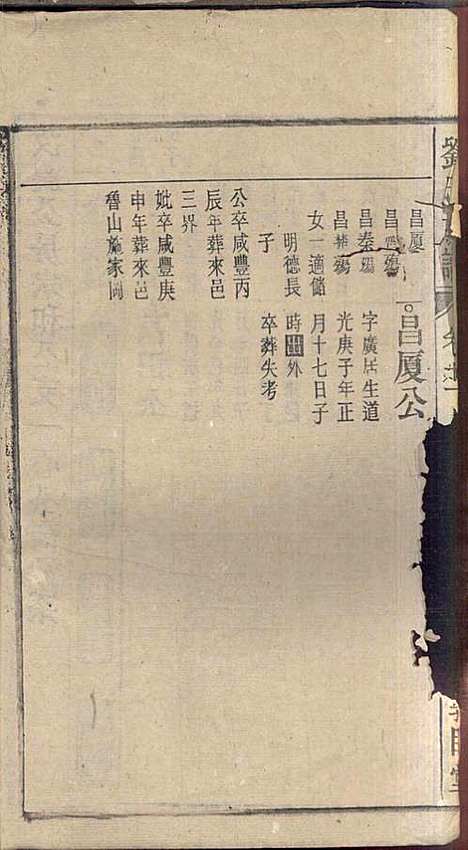 劉
昌厦
昌
殤
昌秦殤
昌
殤
女一適儲
明德長
子
公卒咸豐丙
辰年葬來邑
三界
妣卒咸豐庚
申年葬來邑
魯山施家岡
昌厦公
字廣居生道
光庚子年正
月十七日子
時出外
卒葬失考